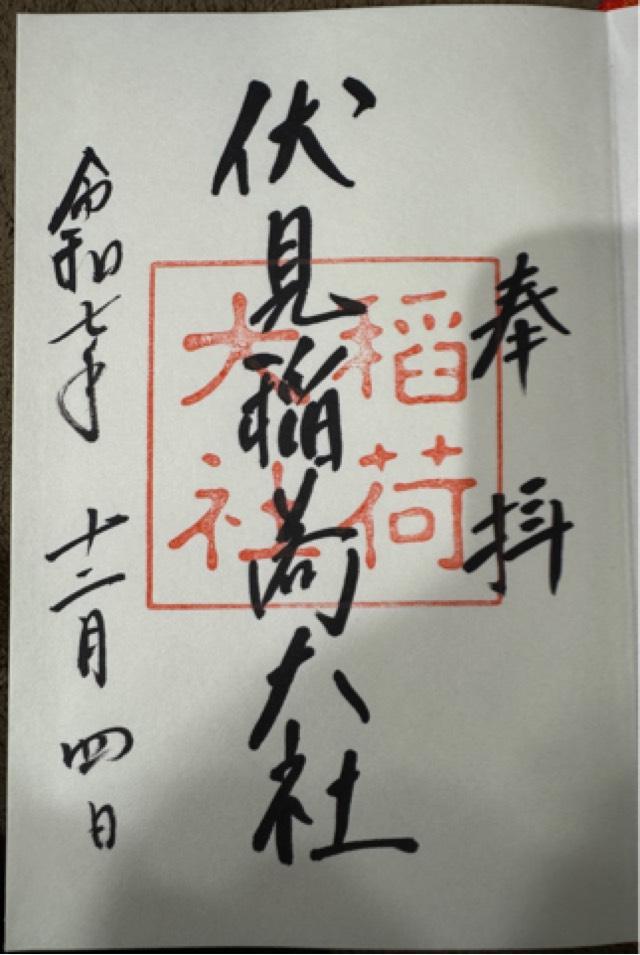 奉拝
伏見稲荷大社
稲荷
大社
令和七年 十二月 四日